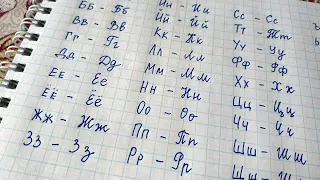 Бб - Бб
Вв - Вв
Гг - Гг
Дд - Дд
Ее - Ее
Ёё - Ёё
Жж - Жж
Зз - Зз
Ии - Ии
Йй - Йй
Кк - Кк
Лл - Лл
Мм - Мм
Нн - Нн
Оо - Оо
Пп - Пп
Рр - Рр
Сс - Сс
Тт - Тт
Уу - Уу
Фф - Фф
Хх - Хх
Цц - Цц
Чч - Чч
Шш - Шш